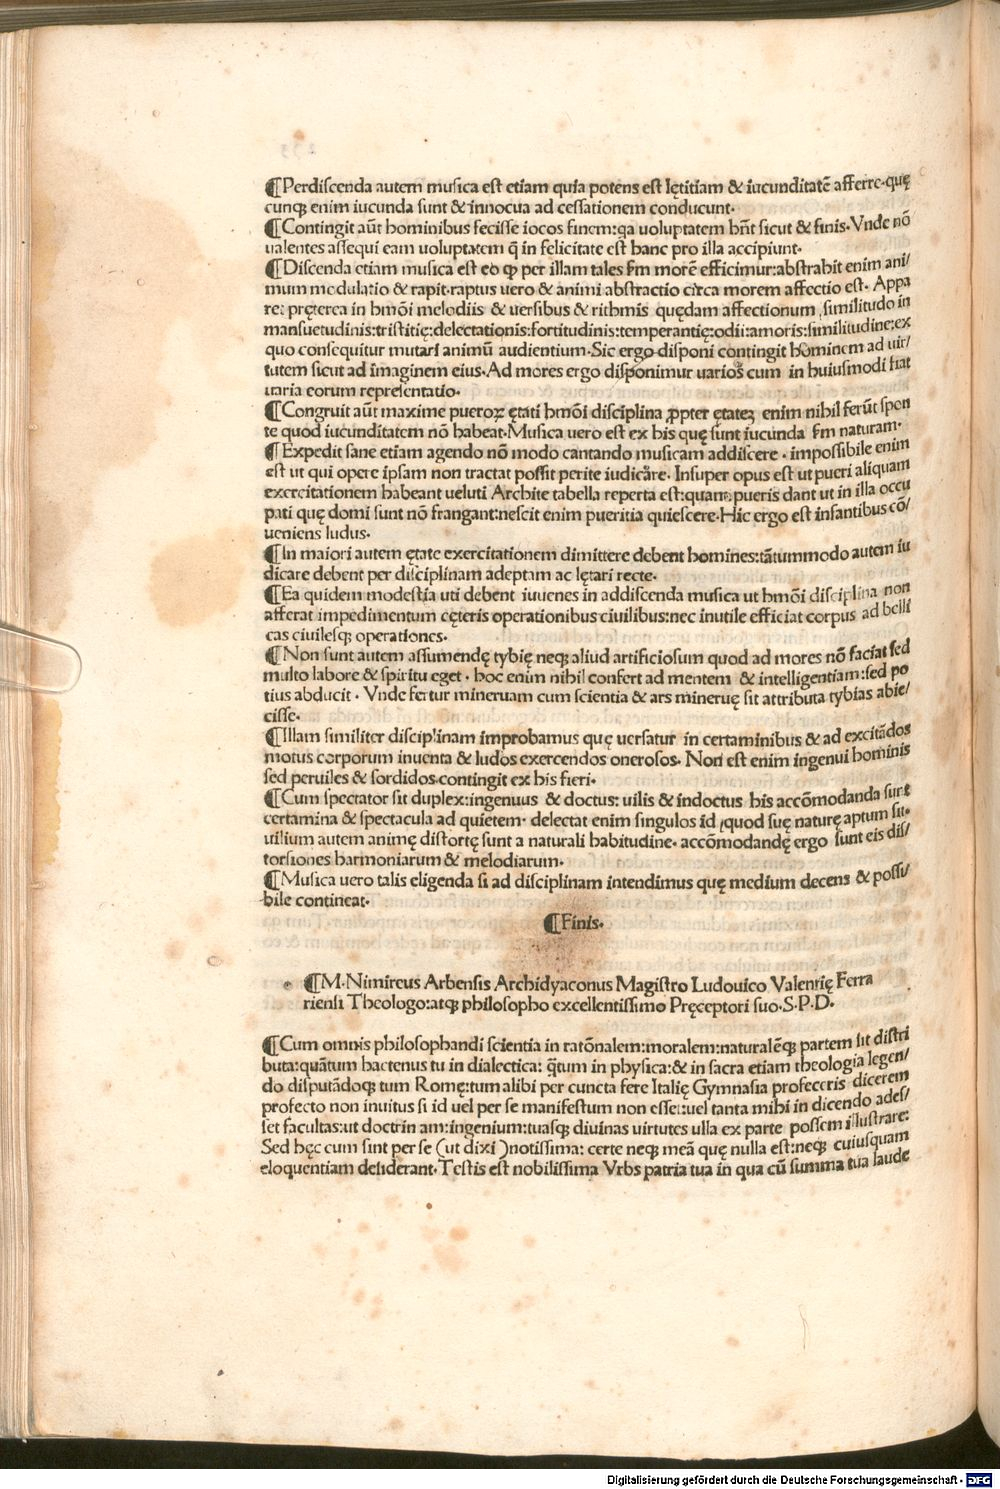 ¶Perdiscenda autem musica est etiam quia potens est lętitiam & iucunditatē afferre·quę
cunqȝ enim iucunda sunt & innocua ad cessationem conducunt·
¶Contingit aūt hominibus fecisse iocos finem:qa uoluptatem hn̄t sicut & finis·Vnde nō
ualentes assequi eam uoluptatem q̄ in felicitate est hanc pro illa accipiunt·
¶Discenda etiam musica est eo ꝙ per illam tales fm morē efficimur:abstrahit enim ani/
mum modulatio & rapit·raptus uero & animi abstractio circa morem affectio est· Appa
ret pręterea in hmōi melodiis & uersibus & rithmis quędam affectionum similitudo in
mansuetudinis:tristitię:delectationis:fortitudinis:temperantię:odii:amoris:similitudine:ex
quo consequitur mutari animū audientium·Sic ergo disponi contingit hominem ad uir/
tutem sicut ad imaginem eius·Ad mores ergo disponimur uarios cum in huiusmodi fiat
uaria eorum representatio·
¶Congruit aūt maxime pueroꝝ ętati hmōi disciplina ꝓpter ętateȝ enim nihil ferūt spon
te quod iucunditatem nō habeat·Musica uero est ex his quę sunt iucunda fm naturam·
¶Expedit sane etiam agendo nō modo cantando musicam addiscere · impossibile enim
est ut qui opere ipsam non tractat possit perite iudicare· Insuper opus est ut pueri aliquam
exercitationem habeant ueluti Archite tabella reperta est:quam pueris dant ut in illa occu
pati quę domi sunt nō frangant:nescit enim pueritia quiescere·Hic ergo est infantibus cō/
ueniens ludus·
¶In maiori autem ętate exercitationem dimittere debent homines:tātummodo autem iu
dicare debent per disciplinam adeptam ac lętari recte·
¶Ea quidem modestia uti debent iuuenes in addiscenda musica ut hmōi disciplina non
afferat impedimentum cęteris operationibus ciuilibus:nec inutile efficiat corpus ad belli
cas ciuilesqȝ operationes·
¶Non sunt autem assumendę tybię neqȝ aliud artificiosum quod ad mores nō faciat sed
multo labore & spiritu eget · hoc enim nihil confert ad mentem & intelligentiam:sed po
tius abducit · Vnde fertur mineruam cum scientia & ars mineruę sit attributa tybias abie/
cisse·
¶Illam similiter disciplinam improbamus quę uersatur in certaminibus & ad excitādos
motus corporum inuenta & ludos exercendos onerosos· Non est enim ingenui hominis
sed peruiles & sordidos contingit ex his fieri·
¶Cum spectator sit duplex:ingenuus & doctus: uilis & indoctus his accōmodanda sunt
certamina & spectacula ad quietem· delectat enim singulos id quod suę naturę aptum sit·
uilium autem animę distortę sunt a naturali habitudine· accōmodandę ergo sunt eis dis/
torsiones harmoniarum & melodiarum·
¶Musica uero talis eligenda si ad disciplinam intendimus quę medium decens & possi/
bile contineat·
¶Finis·
¶M·Nimireus Arbensis Archidyaconus Magistro Ludouico Valentię Ferra
riensi Theologo:atqȝ philosopho excellentissimo Pręceptori suo·S·P·D·
¶Cum omnis philosophandi scientia in ratōnalem:moralem:naturalēqȝ partem sit distri
buta:quātum hactenus tu in dialectica: q̄tum in physica:& in sacra etiam theologia legen/
do disputādoqȝ tum Romę:tum alibi per cuncta fere Italię Gymnasia profeceris dicerem
profecto non inuitus si id uel per se manifestum non esset:uel tanta mihi in dicendo ades/
set facultas:ut doctrinam:ingenium:tuasqȝ diuinas uirtutes ulla ex parte possem illustrare:
Sed hęc cum sint per se (ut dixi )notissima: certe neqȝ meā quę nulla est:neqȝ cuiusquam
eloquentiam desiderant·Testis est nobilissima Vrbs patria tua in qua cū summa tua laude
Digitalisierung gefördert durch die Deutsche Forschungsgemeinschaft - DFG